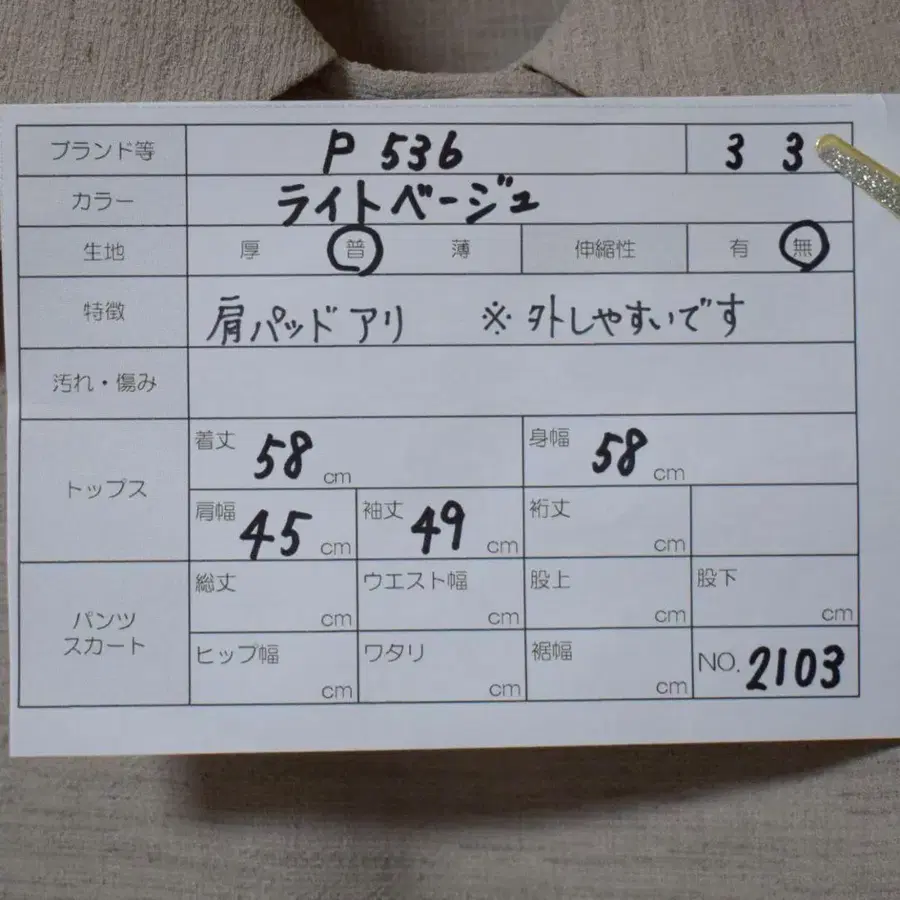 ブランド等 P 536 3 3
カラー ライトベージュ
生地 厚 普 薄 伸縮性 有 無
特徴 肩パッドアリ ※外しやすいです
汚れ・傷み
トップス
着丈 58 cm 身幅 58 cm
肩幅 45 cm 袖丈 49 cm 裄丈 cm
パンツ
スカート
総丈 cm ウエスト幅 cm 股上 cm 股下 cm
ヒップ幅 cm ワタリ cm 裾幅 cm NO. 2103